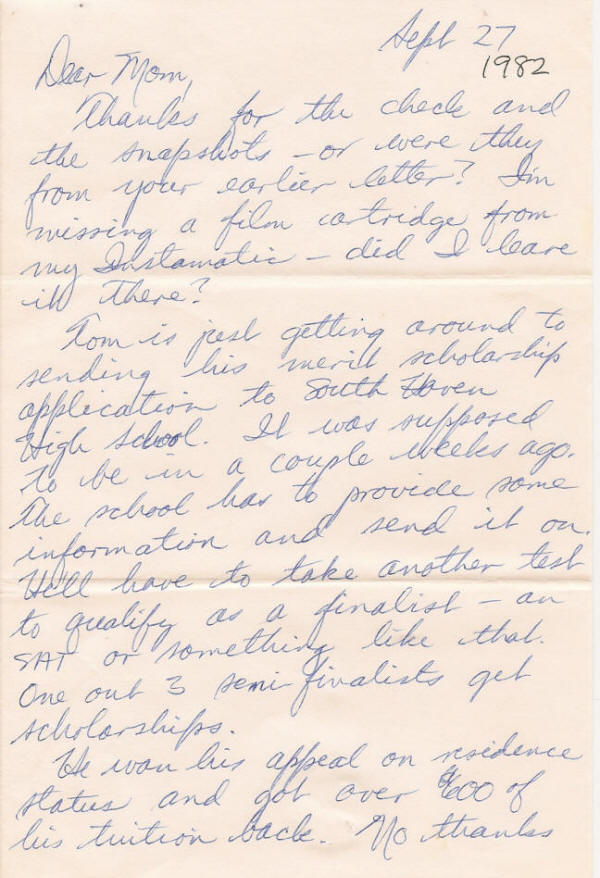 Sept 27
1982
Dear Mom,
Thanks for the check and
the snapshots – or were they
from your earlier letter? I'm
missing a film cartridge from
my Instamatic – did I leave
it there?
Tom is just getting around to
sending his merit scholarship
application to South Haven
High School. It was supposed
to be in a couple weeks ago.
The school has to provide some
information and send it on.
He'll have to take another test
to qualify as a finalist – an
SAT or something like that.
One out 3 semi finalists get
scholarships.
He won his appeal on residence
status and got over $600 of
his tuition back. No thanks